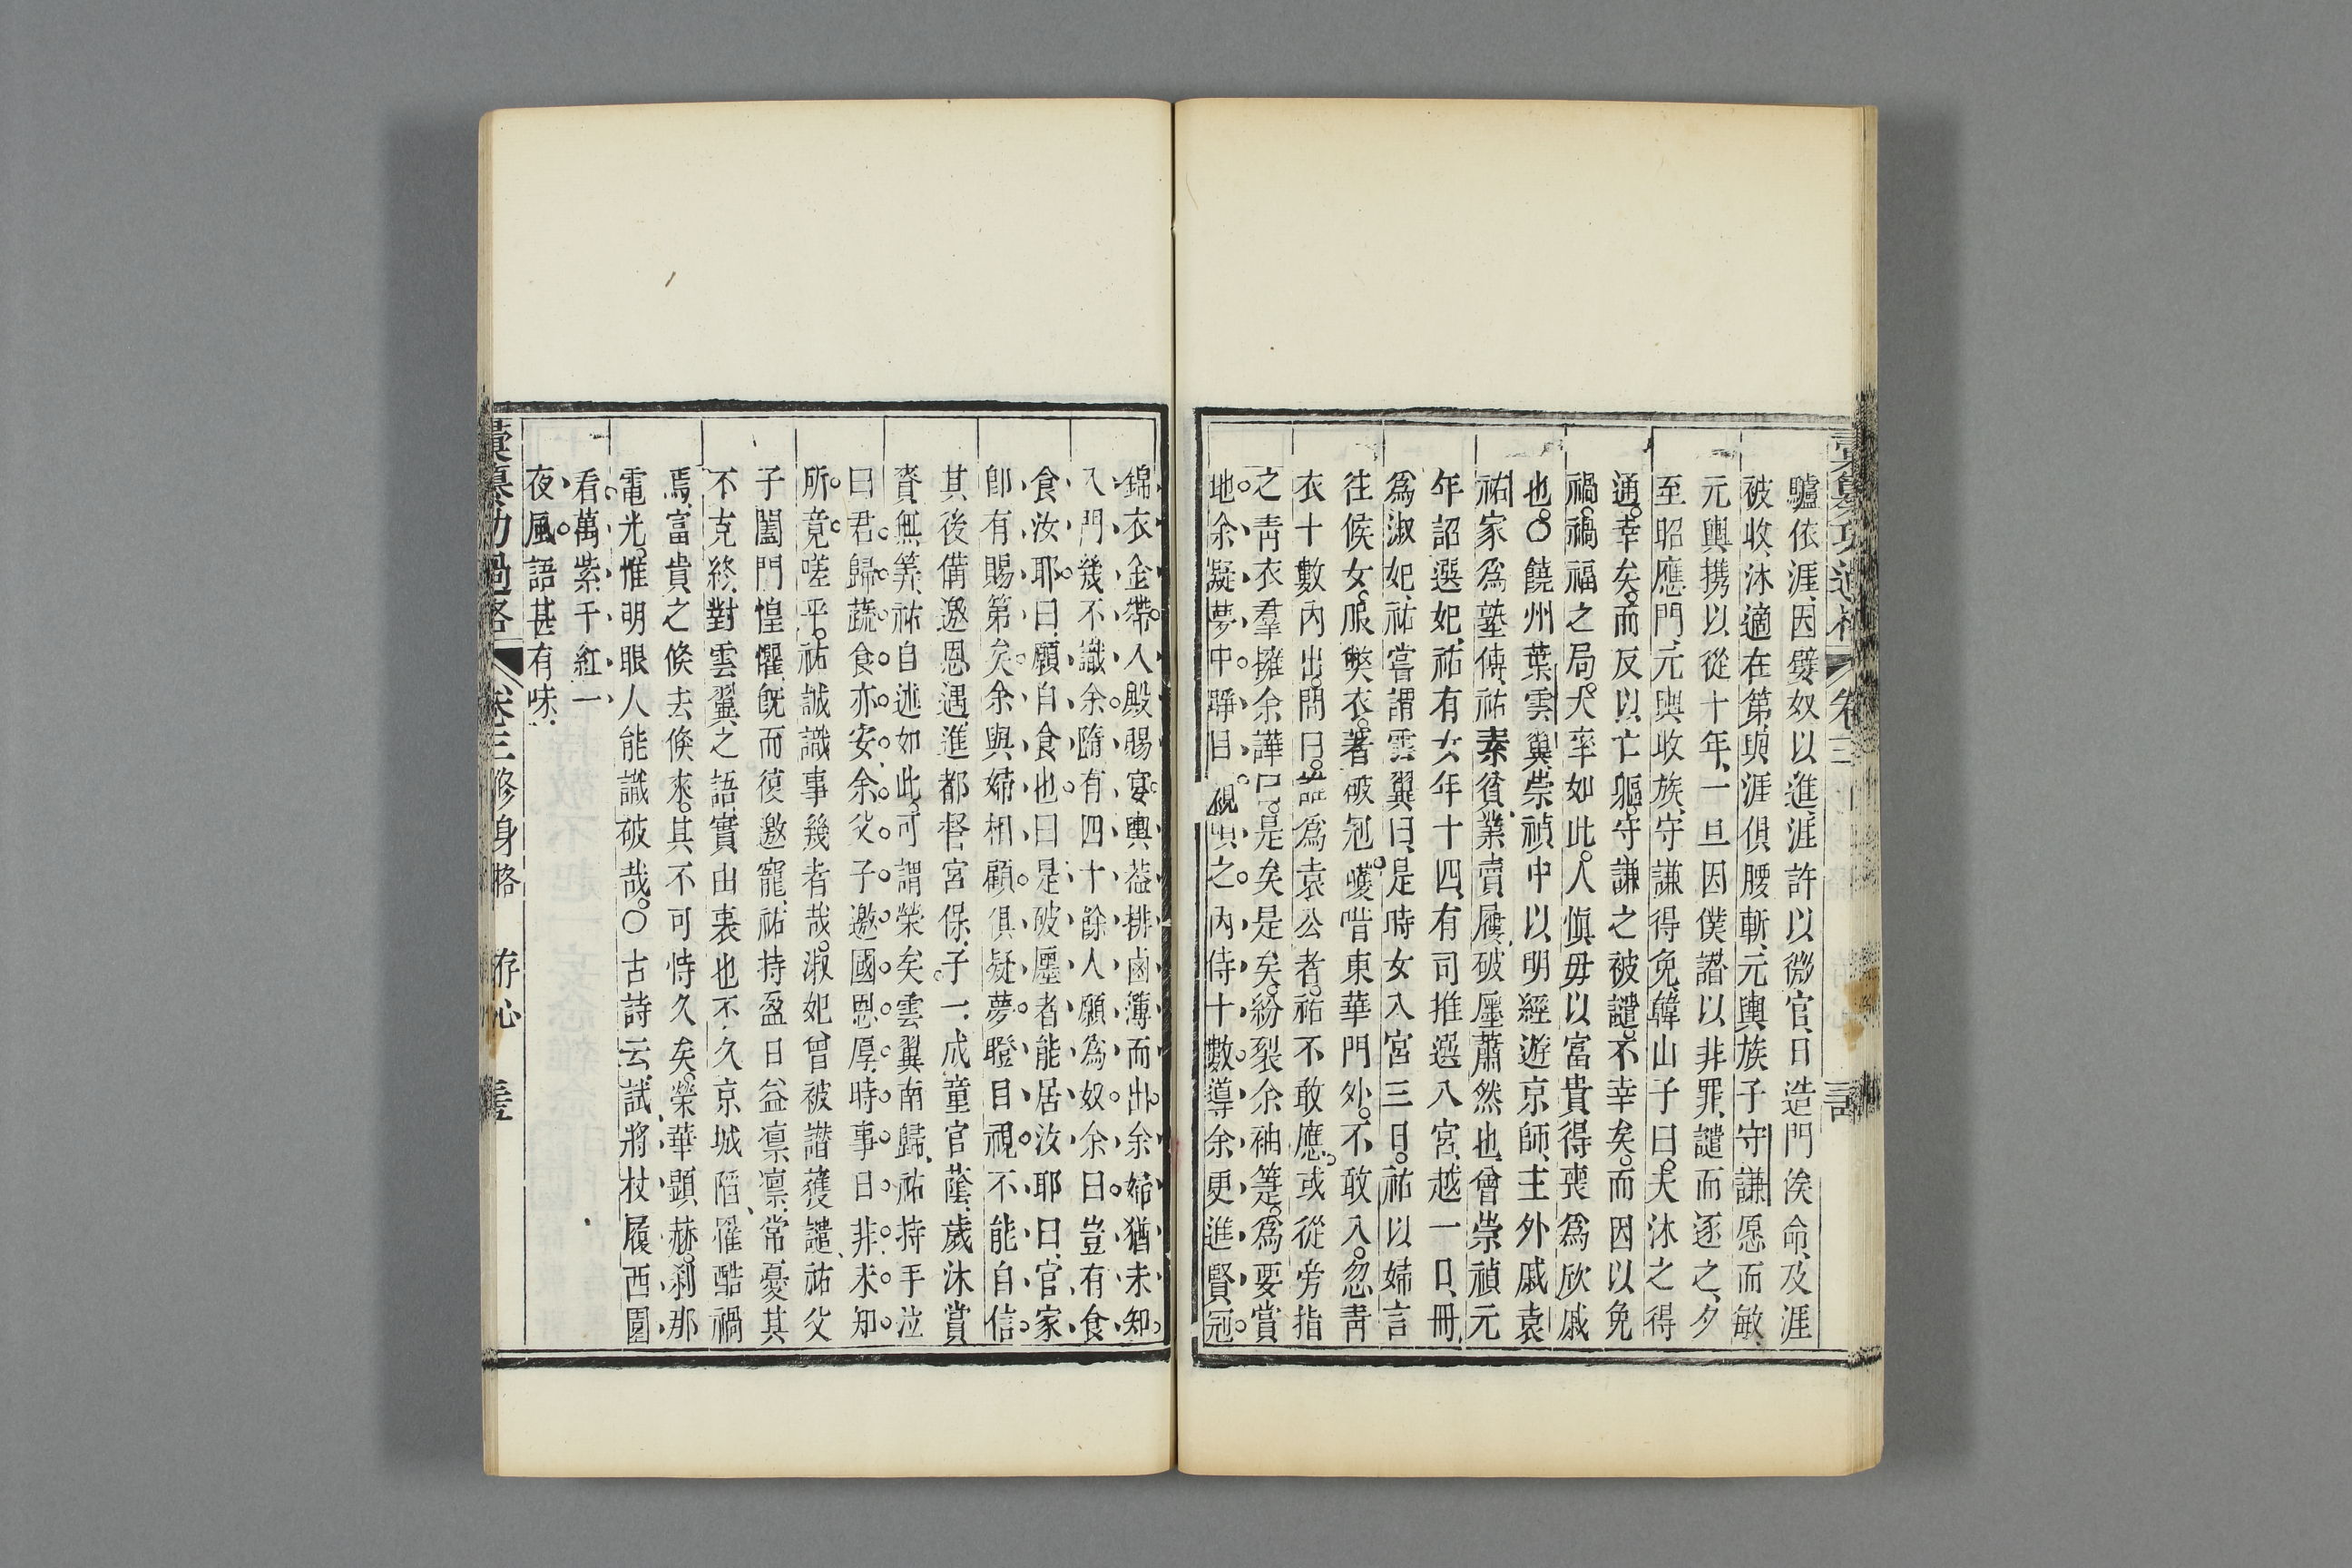 彚纂功過格 卷三
驢依涯因嬖奴以進涯許以微官日造門俟命及涯
被收沐適在第與涯俱腰斬元輿族子守謙愿而敏
元輿擕以從十年一旦因僕譖以非罪譴而逐之夕
至昭應門元輿收族守謙得免韓山子曰夫沐之得
通幸矣而反以亡軀守謙之被譴不幸矣而因以免
禍禍福之局大率如此人愼毋以富貴得喪爲欣戚
也○饒州葉雲翼崇禎中以明經遊京師主外戚袁
祐家爲塾傅祐素貧業賣屨破廛蕭然也曾崇禎元
年詔選妃祐有女年十四有司推選入宮越一日冊
爲淑妃祐嘗謂雲翼曰是時女入宮三日祐以婦言
往候女服獘衣著破冠嚄唶東華門外不敢入忽靑
衣十數內出問曰誰爲袁公者祐不敢應或從旁指
之靑衣羣擁余譁曰是矣是矣紛裂余袖筵爲要賞
地余凝夢中踭目覘之內侍十數導余更進賢冠
錦衣金帶入殿賜宴輿葢排鹵簿而出余婦猶未知
入門幾不識余隨有四十餘人願爲奴余曰豈有食
食汝耶曰願自食也曰是破廛者能居汝耶曰官家
卽有賜第矣余與婦相顧俱疑夢瞪目視不能自信
其後備邀恩遇進都督宮保子一成童官蔭歲沐賞
賚無筭祐自述如此可謂榮矣雲翼南歸祐持手泣
曰君歸蔬食亦安余父子邀國恩厚時事日非未知
所竟嗟乎祐誠識事幾者哉淑妃曾被譖獲譴祐父
子闔門惶懼旣而復邀寵祐持盈日益凛凛常憂其
不克終對雲翼之語實由衷也不久京城陷罹酷禍
焉富貴之倏去倏來其不可恃久矣榮華顯赫刹那
電光惟明眼人能識破哉○古詩云試將杖履西園
看萬紫千紅一
夜風語甚有味
彚纂功過格 卷三修身格 存心